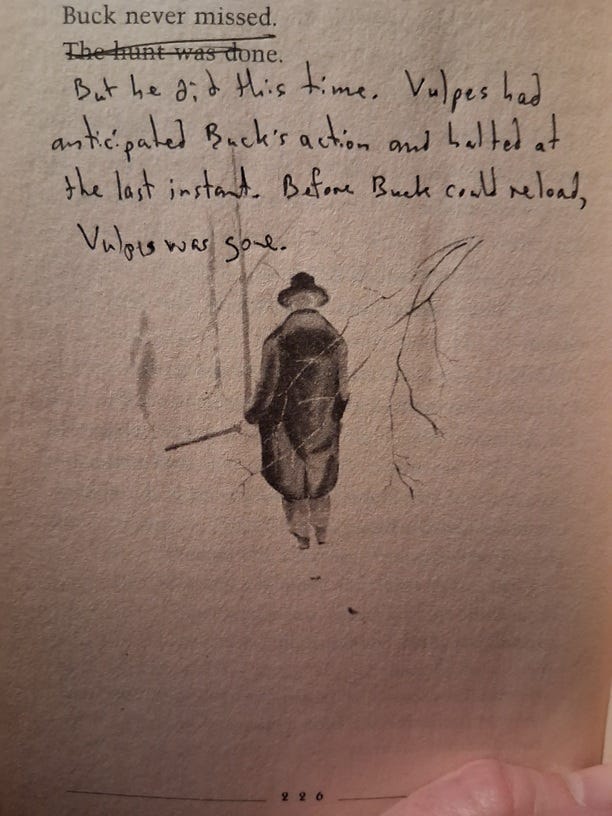 Buck never missed.
The hunt was done.
But he did this time. Vulpes had
anticipated Buck's action and halted at
the last instant. Before Buck could reload,
Vulpes was gone.
226